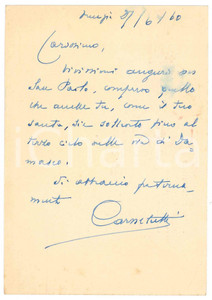 29/6/60
Carissimo,
vivissimi auguri per
San Paolo, compreso quello
che anche tu, come il tuo
santo, sia sollevato fino al
terzo cielo nella via di Da-
masco.
Ti abbraccio
Carnelutti